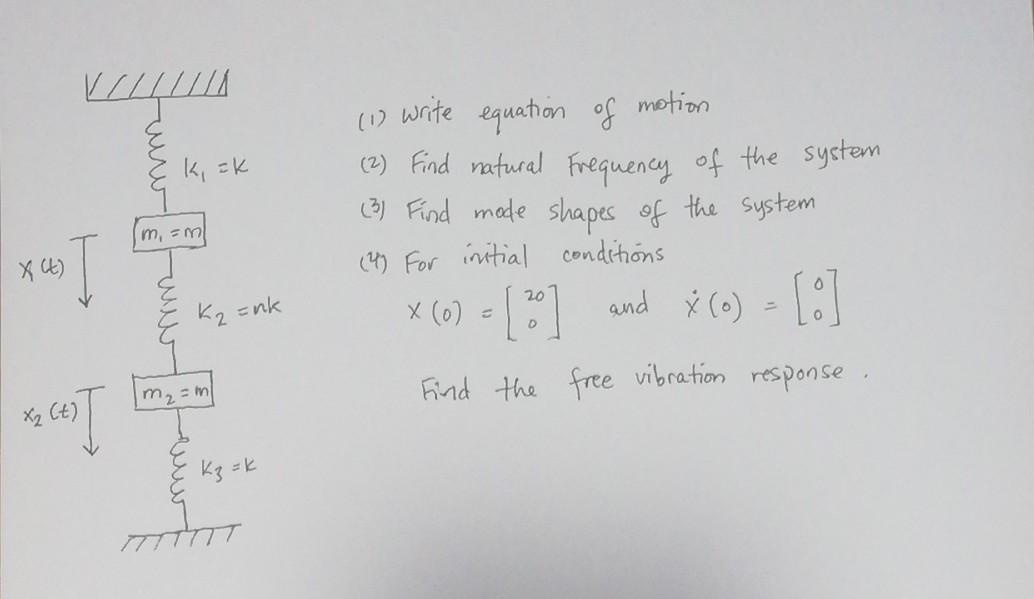 K₁ = K
m₁ = m
x₁(t)
K₂ = nk
m₂ = m
x₂(t)
K₃ = K
(1) Write equation of motion
(2) Find natural Frequency of the system
(3) Find mode shapes of the system
(4) For initial conditions
x(0) = [20 0] and ẋ(0) = [0 0]
Find the free vibration response.